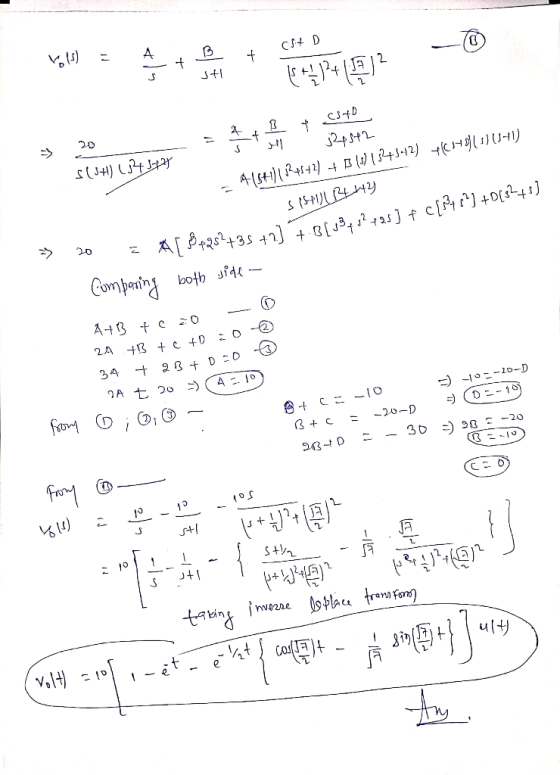 V₀(s) = A/s + B/(s+1) + (Cs+D)/((s+1/2)²+(√7/2)²) — Ⓑ
⇒ 20/(s(s+1)(s²+s+2)) = A/s + B/(s+1) + (Cs+D)/(s²+s+2)
= (A(s+1)(s²+s+2) + B(s)(s²+s+2) + (Cs+D)(s)(s+1))/(s(s+1)(s²+s+2))
⇒ 20 = A[s³+2s²+3s+2] + B[s³+s²+2s] + C[s³+s²] + D[s²+s]
Comparing both side —
A+B + C = 0 — ①
2A + B + C + D = 0 — ②
3A + 2B + D = 0 — ③
2A = 20 ⇒ A = 10
from ①, ②, ③ —
B + C = -10 ⇒ -10 = -20-D
B + C = -20-D ⇒ D = -10
2B+D = -30 ⇒ 2B = -20
B = -10
C = 0
from Ⓑ —
V₀(s) = 10/s - 10/(s+1) - 10s/((s+1/2)²+(√7/2)²)
= 10[1/s - 1/(s+1) - {(s+1/2)/((s+1/2)²+(√7/2)²) - 1/√7 · (√7/2)/((s+1/2)²+(√7/2)²)}]
taking inverse Laplace transform
V₀(t) = 10[1 - e^-t - e^-1/2t {cos(√7/2)t - 1/√7 sin(√7/2)t}] u(t)
Ans.